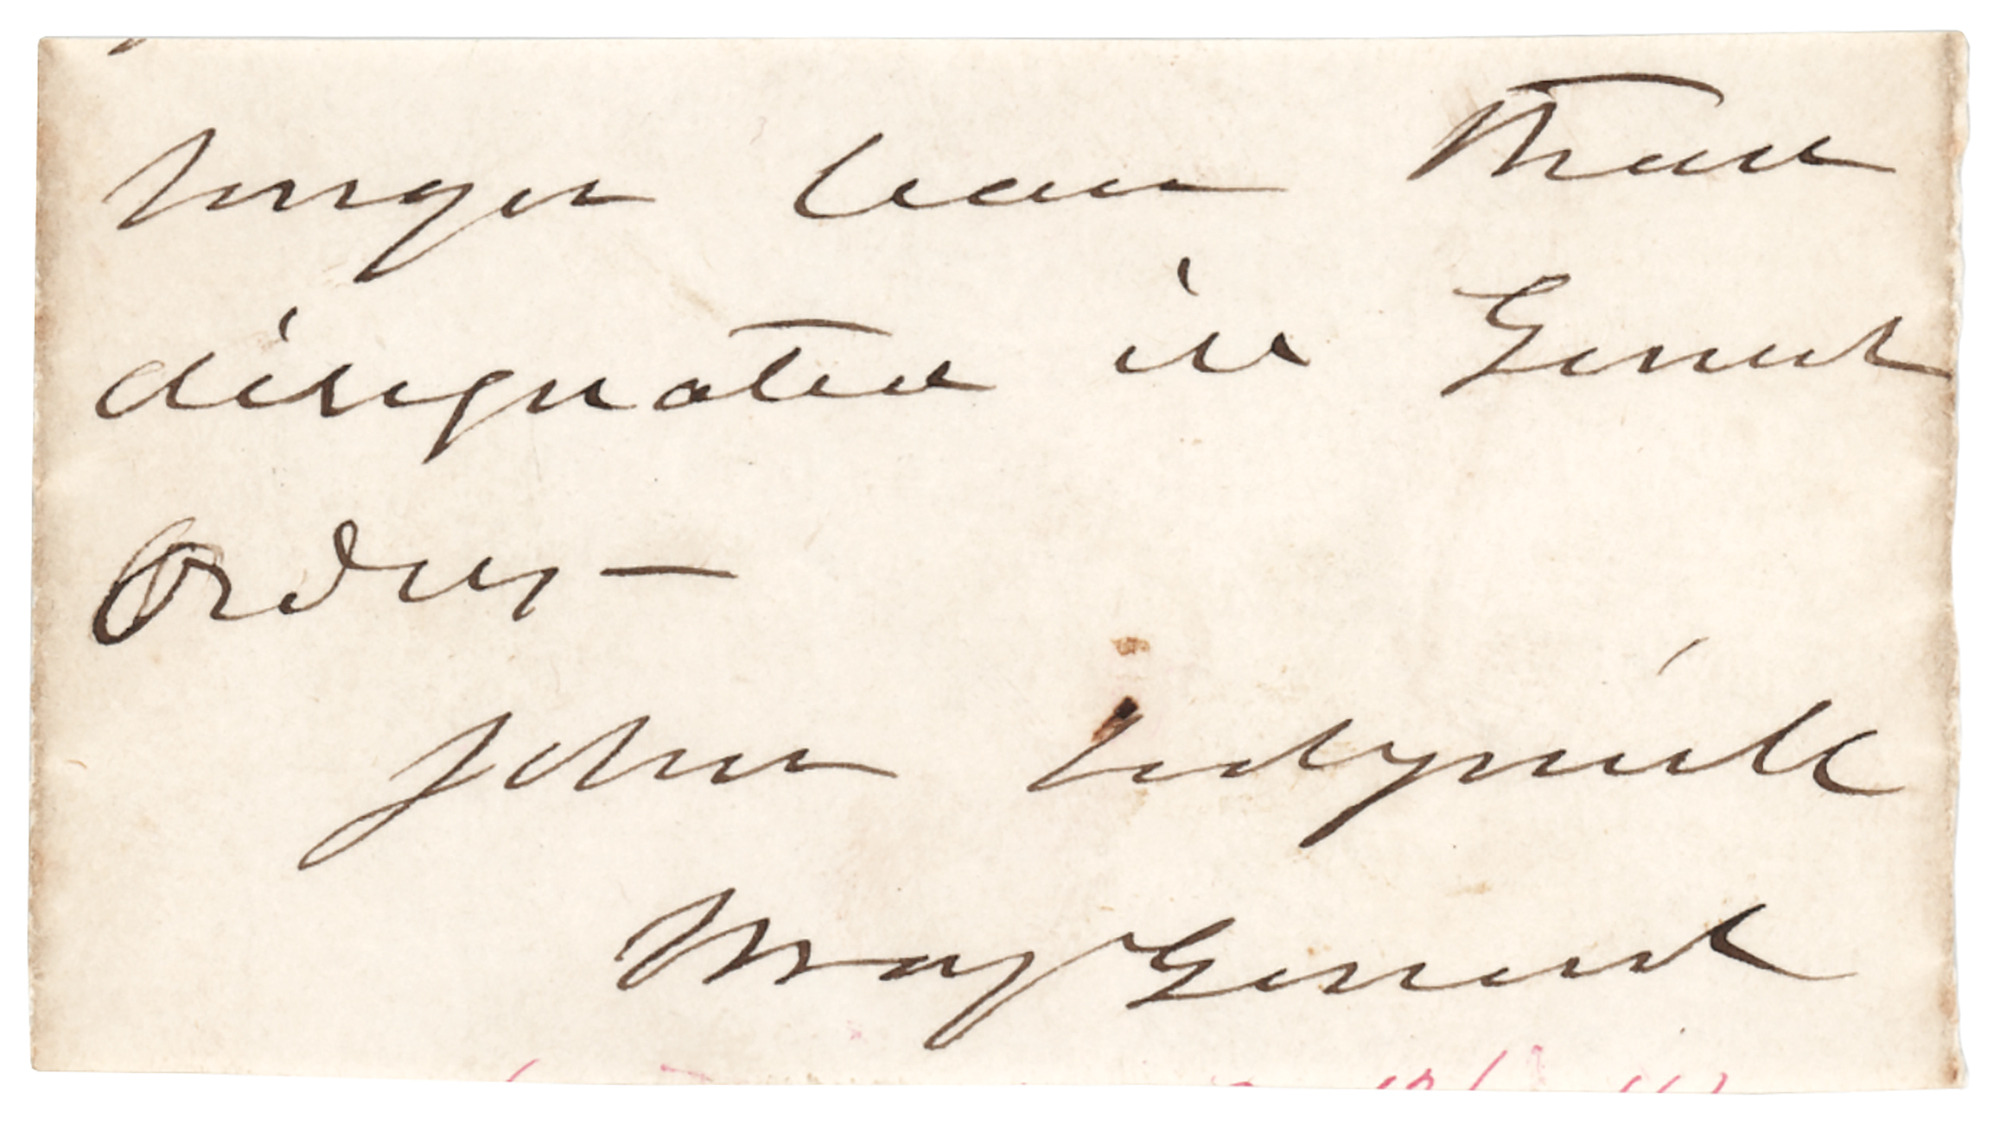 longer leave than
designated in Genl
Orders—
John Sedgwick
Maj Genl